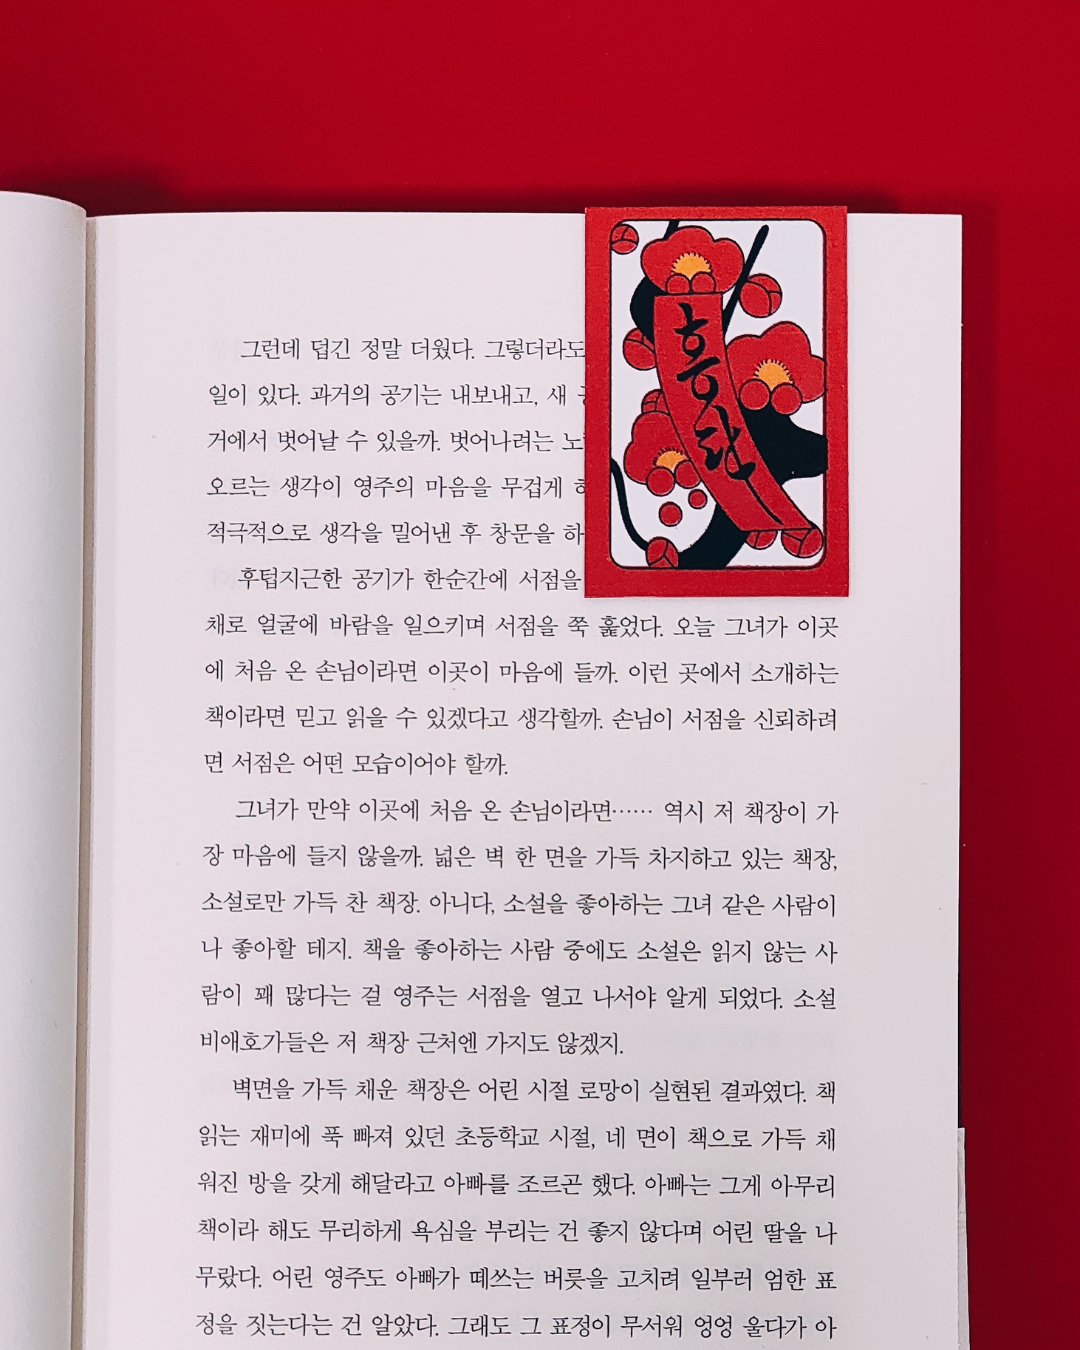 그런데 덥긴 정말 더웠다. 그렇더라도
일이 있다. 과거의 공기는 내보내고, 새
거에서 벗어날 수 있을까. 벗어나려는
오르는 생각이 영주의 마음을 무겁게
적극적으로 생각을 밀어낸 후 창문을
후텁지근한 공기가 한순간에 서점을
채로 얼굴에 바람을 일으키며 서점을 쭉 훑었다. 오늘 그녀가 이곳
에 처음 온 손님이라면 이곳이 마음에 들까. 이런 곳에서 소개하는
책이라면 믿고 읽을 수 있겠다고 생각할까. 손님이 서점을 신뢰하려
면 서점은 어떤 모습이어야 할까.
그녀가 만약 이곳에 처음 온 손님이라면…… 역시 저 책장이 가
장 마음에 들지 않을까. 넓은 벽 한 면을 가득 차지하고 있는 책장,
소설로만 가득 찬 책장. 아니다, 소설을 좋아하는 그녀 같은 사람이
나 좋아할 테지. 책을 좋아하는 사람 중에도 소설은 읽지 않는 사
람이 꽤 많다는 걸 영주는 서점을 열고 나서야 알게 되었다. 소설
비애호가들은 저 책장 근처엔 가지도 않겠지.
벽면을 가득 채운 책장은 어린 시절 로망이 실현된 결과였다. 책
읽는 재미에 푹 빠져 있던 초등학교 시절, 네 면이 책으로 가득 채
워진 방을 갖게 해달라고 아빠를 조르곤 했다. 아빠는 그게 아무리
책이라 해도 무리하게 욕심을 부리는 건 좋지 않다며 어린 딸을 나
무랐다. 어린 영주도 아빠가 떼쓰는 버릇을 고치려 일부러 엄한 표
정을 짓는다는 건 알았다. 그래도 그 표정이 무서워 엉엉 울다가 아
홍단